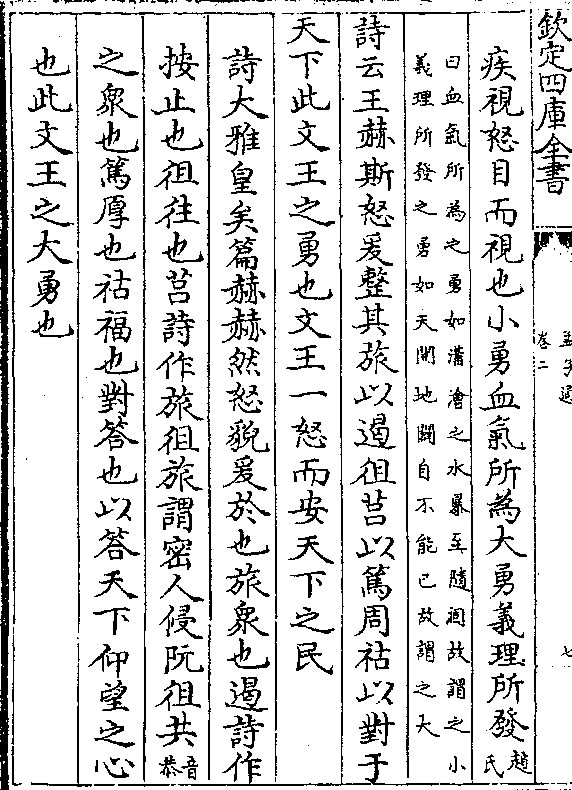 欽定四庫全書
孟子通
卷二
七
疾視怒目而視也小勇血氣所為大勇義理所發趙氏
曰血氣所為之勇如溝澮之水暴至隨涸故謂之小
義理所發之勇如天開地闢自不能已故謂之大
詩云王赫斯怒爰整其旅以遏徂莒以篤周祜以對于
天下此文王之勇也文王一怒而安天下之民
詩大雅皇矣篇赫赫然怒貌爰於也旅衆也遏詩作
按止也徂往也莒詩作旅徂旅謂密人侵阮徂共音恭
之衆也篤厚也祜福也對答也以答天下仰望之心
也此文王之大勇也